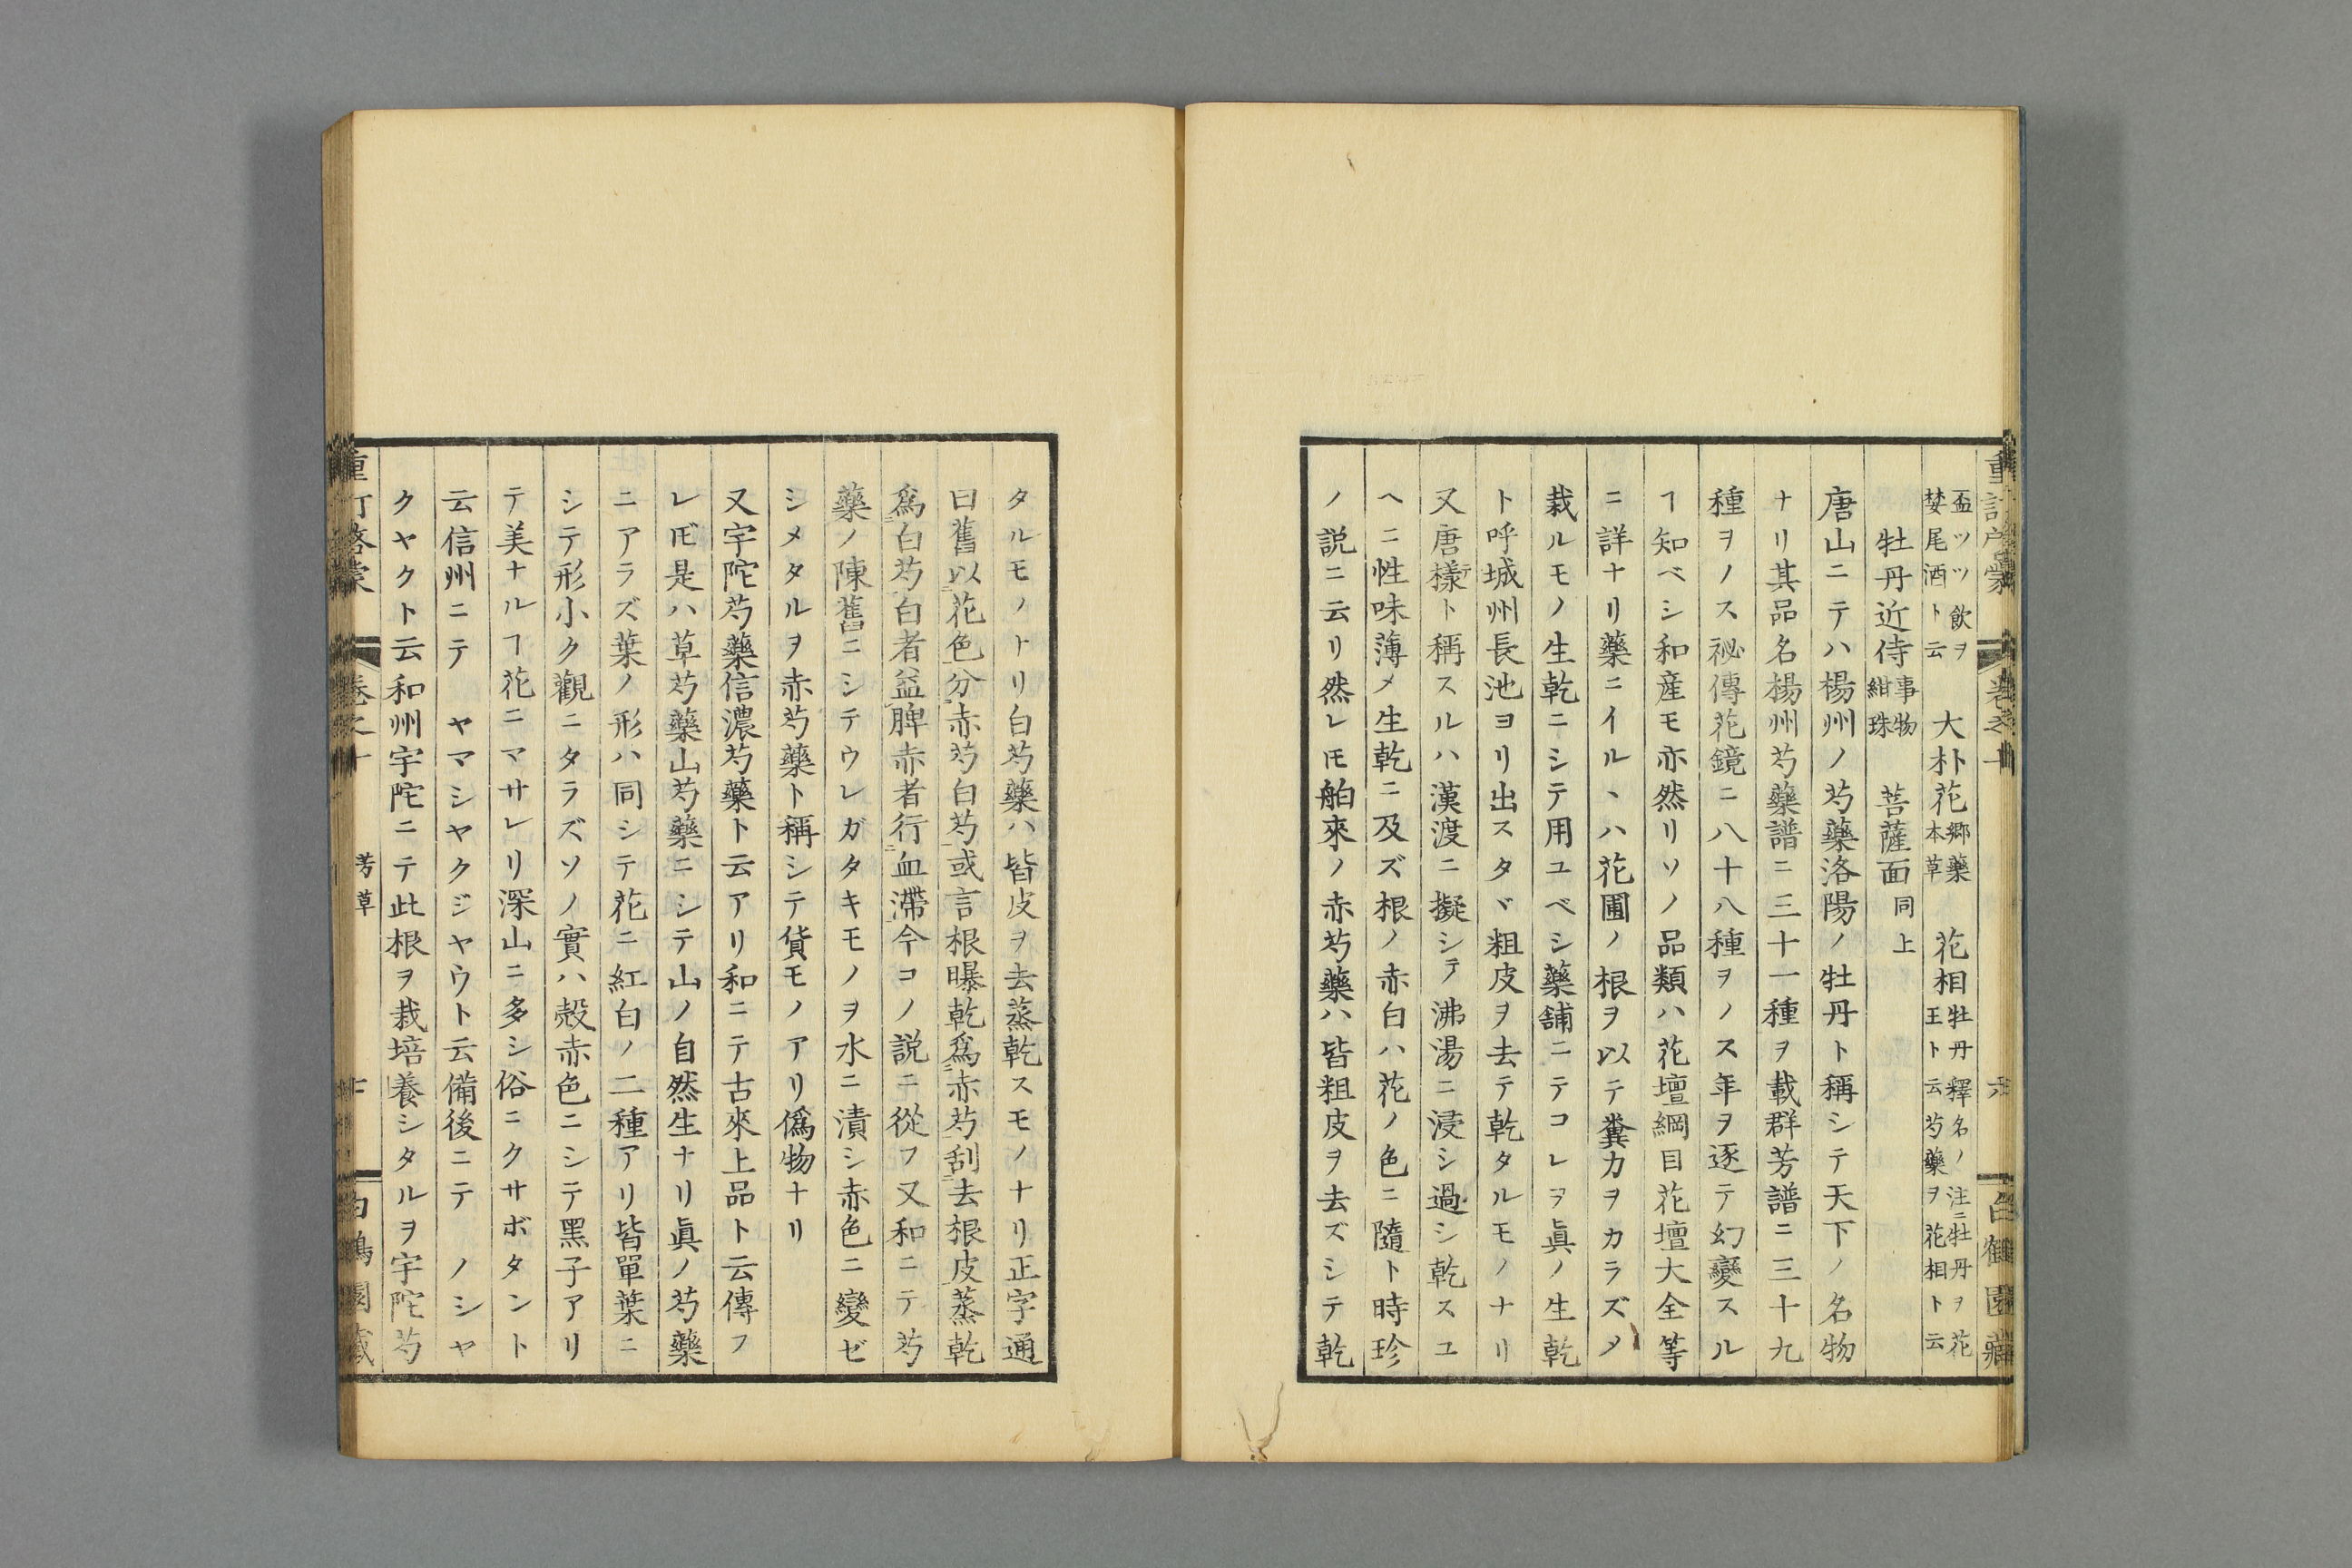 盃ツツ飲ヲ
婪尾酒ト云　大朴花郷藥本草　花相牡丹釋名ノ注ニ牡丹ヲ花王ト云芍藥ヲ花相ト云
牡丹近侍事物紺珠　菩薩面同上
唐山ニテハ楊州ノ芍藥洛陽ノ牡丹ト稱シテ天下ノ名物
ナリ其品名楊州芍藥譜ニ三十一種ヲ載群芳譜ニ三十九
種ヲノス祕傳花鏡ニ八十八種ヲノス年ヲ逐テ幻變スル
ヿ知ベシ和産モ亦然リソノ品類ハ花壇綱目花壇大全等
ニ詳ナリ藥ニイルヽハ花圃ノ根ヲ以テ糞力ヲカラズメ
栽ルモノ生乾ニシテ用ユベシ藥舗ニテコレヲ眞ノ生乾
ト呼城州長池ヨリ出スタヾ粗皮ヲ去テ乾タルモノナリ
又唐様テト稱スルハ漢渡ニ擬シテ沸湯ニ浸シ過シ乾スユ
ヘニ性味薄メ生乾ニ及ズ根ノ赤白ハ花ノ色ニ隨ト時珍
ノ説ニ云リ然レ𪜈舶來ノ赤芍藥ハ皆粗皮ヲ去ズシテ乾
タルモノトリ白芍藥ハ皆皮ヲ去蒸乾スモノナリ正字通
曰舊以花色分赤芍白芍或言根曝乾爲赤芍刮去根皮蒸乾
爲白芍白者益脾赤者行血滯今コノ説ニ從フ又和ニテ芍
藥ノ陳舊ニシテウレガタキモノヲ水ニ漬シ赤色ニ變ゼ
シメタルヲ赤芍藥ト稱シテ貨モノアリ僞物ナリ
又宇陀芍藥信濃芍藥ト云アリ和ニテ古來上品ト云傳フ
レ𪜈是ハ草芍藥山芍藥ニシテ山ノ自然生ナリ眞ノ芍藥
ニアラズ葉ノ形ハ同シテ花ニ紅白ノ二種アリ皆單葉ニ
シテ形小ク觀ニタラズソノ實ハ殻赤色ニシテ黑子アリ
テ美ナルヿ花ニマサレリ深山ニ多シ俗ニクサボタント
云信州ニテ　ヤマシヤクジヤウト云備後ニテ　ノシヤ
クヤクト云和州宇陀ニテ此根ヲ栽培養シタルヲ宇陀芍
卷之十　芳草